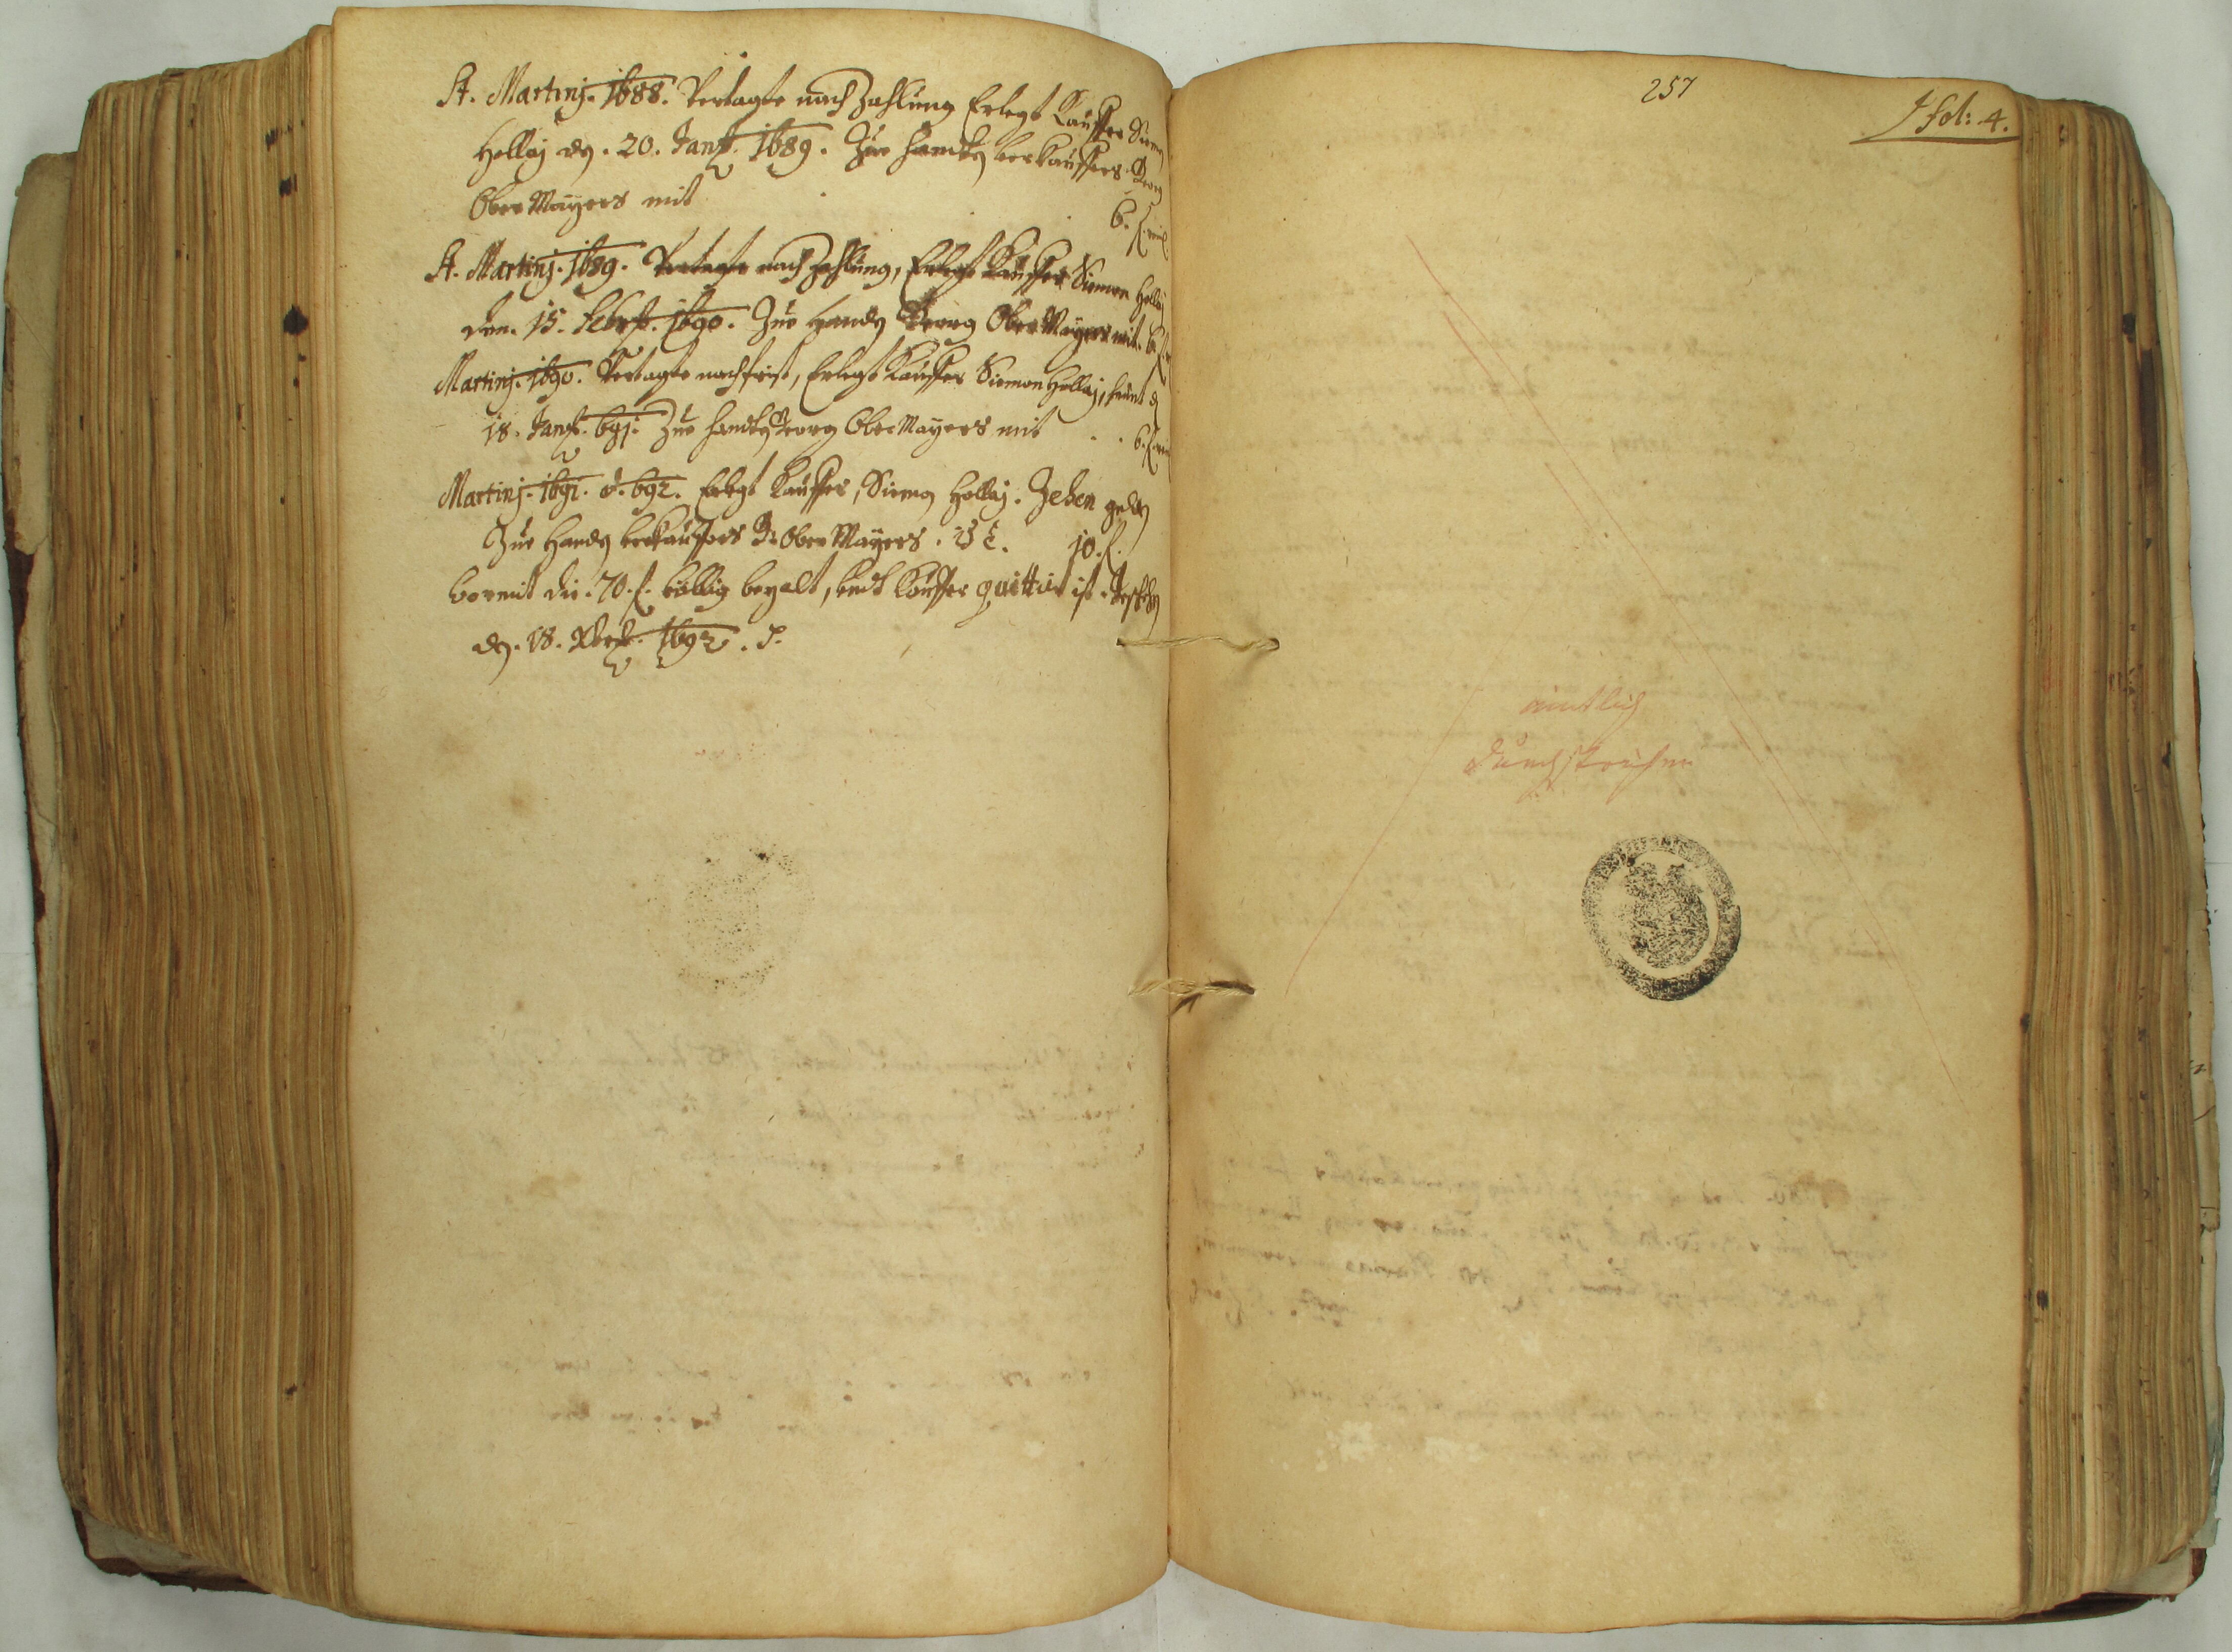 St. Martinj. 1688. Vertagte nach Zahlung Erlegt Kauffer Simon
Hollaj den. 20. Janr. 1689. Zue handten verkauffers Georg
Ober Mayers mit 6. f.
St. Martinj. 1689. Vertagte nach Zahlung, Erlegt Kauffer Simon Hollaj
den. 15. Febr. 1690. Zue Handen Georg Ober Mayers mit. 6 f.
Martinj. 1690. Vertagte nachfrist, Erlegt Kauffer Siemon Hollaj, heunt
18. Janr. 691. Zue handten Georg Ober Mayers mit . . 6. f.
Martinj. 1691. et. 692. Erlegt Kauffer, Simon Hollaj. Zehen
Zue Handen verkauffers G. Ober Mayers. 10. f.
vormit die. 70. f. völlig bezalt, undt Kauffer quittirt ist.
den. 18. Xbr. 1692.
257
fol: 4.
amtlich
durchstrichen